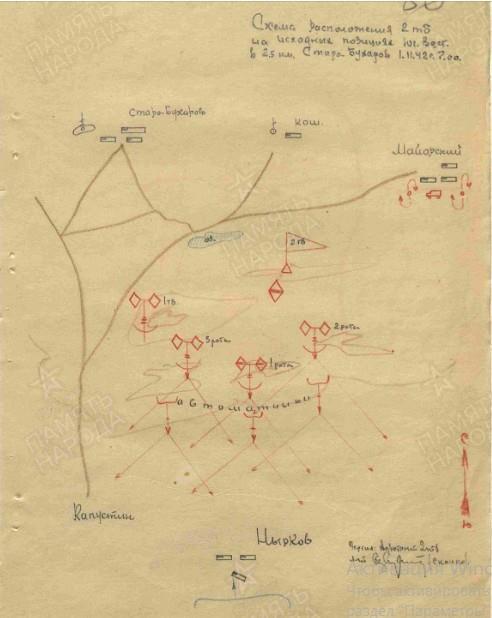 Схема расположения 2 тб
на исходных позициях юг. вост.
в 2.5 км. Старо-Бухаров 1.11.42 г. 7.00
Старо-Бухарово
кош.
Майорский
оз.
2 тб
1 тб
3 рота
2 рота
1 рота
автоматчики
Капустин
Нырков
с
ю
2 тб
ПАМЯТЬ
НАРОДА
Активация Wind
Чтобы активировать
раздел "Параметры